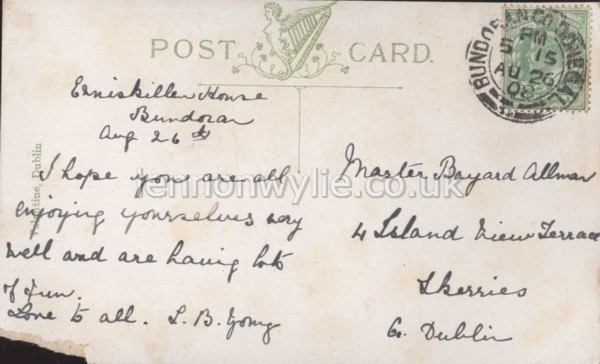 POST CARD.
BUNDORAN CO. DONEGAL
5 PM
15
AU 26
08
Enniskillen House
Bundoran
Aug 26th
I hope you are all
enjoying yourselves very
well and are having lots
of fun.
Love to all. L. B. Young
Valentine, Dublin
Master Bayard Allman
4 Island View Terrace
Skerries
Co. Dublin
lennonwylie.co.uk